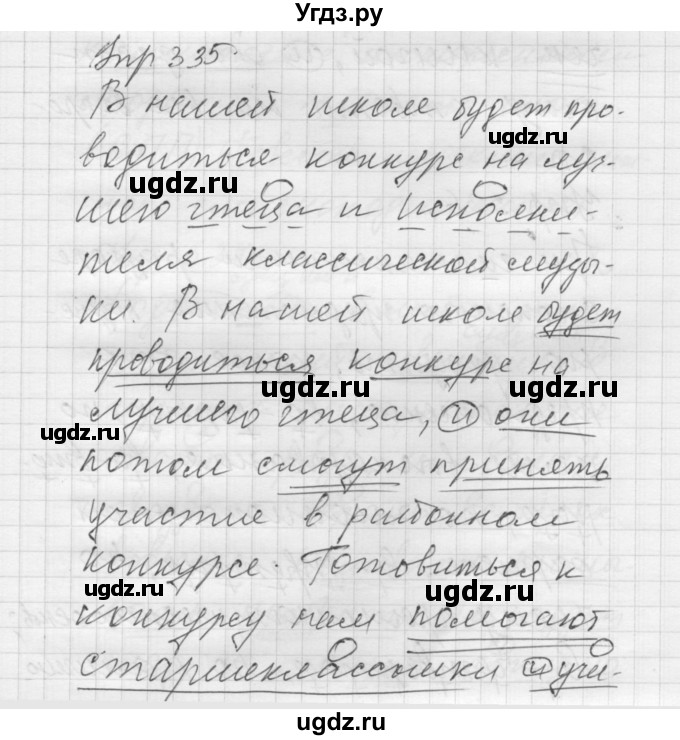 Угдз.ру
Упр 335.
В нашей школе будет про-
водиться конкурс на луч-
шего чтеца и исполни-
теля классической музы-
ки. В нашей школе будет
проводиться конкурс на
лучшего чтеца, и они
потом смогут принять
участие в районном
конкурсе. Готовиться к
конкурсу нам помогают
старшеклассники и учи-
ugdz.ru
ugdz.ru
ugdz.ru
ugdz.ru
ugdz.ru
ugdz.ru
ugdz.ru
ugdz.ru
ugdz.ru
ugdz.ru